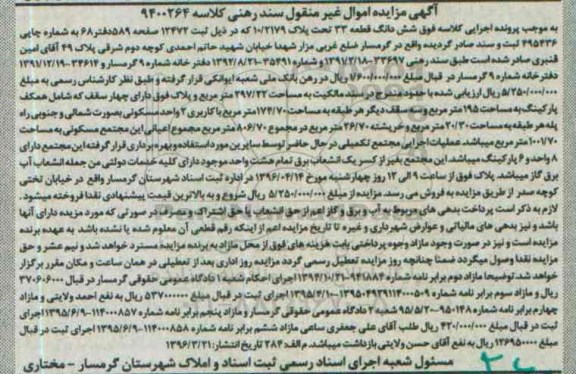 آگهی مزایده اموال غیر منقول سند رهنی کلاسه ۹۴۰۰۲۶۴
به موجب پرونده اجرایی کلاسه فوق شش دانگ قطعه ۳۳ تحت پلاک ۱۰/۲۱۷۹ که در ذیل ثبت ۱۲۴۷۲ صفحه ۵۸۹ دفتر ۶۸ به شماره چاپی
۴۹۵۴۳۶ ثبت و سند صادر گردیده واقع در گرمسار ضلع غربی مزار شهدا خیابان شهید حاتم احمدی کوچه دوم شرقی پلاک ۴۹ آقای امین
قنبری صادر شده است طبق سند رهنی ۳۳۶۹۷-۱۳۹۱/۲/۱۸ و شماره ۳۵۴۹۱-۱۳۹۲/۸/۲۱ دفتر خانه شماره ۹ گرمسار و ۳۴۶۱۴-۱۳۹۱/۱۲/۱۹
دفتر خانه شماره ۹ گرمسار در قبال مبلغ ۷/۶۰۰/۰۰۰/۰۰۰ ریال در رهن بانک ملی شعبه ایوانکی قرار گرفته و طبق نظر کارشناس رسمی به مبلغ
۵/۲۵۰/۰۰۰/۰۰۰ ریال ارزیابی شده با حدود مندرج در سند مالکیت به مساحت ۲۹۷/۲۲ متر مربع و پلاک فوق دارای چهار سقف که شامل همکف
پارکینگ به مساحت ۱۹۵ متر مربع و سه سقف دیگر هر طبقه به مساحت ۱۷۴/۷۰ متر مربع با کاربری ۲ واحد مسکونی بصورت شمالی و جنوبی راه
پله هر طبقه به مساحت ۲۰/۳۰ متر مربع و خرپشته ۲۶/۷۰ متر مربع در مجموع ۸۰۶/۷۰ متر مربع مجموع اعیانی این مجتمع مسکونی به مساحت
۱۰۰۱/۷۰ متر مربع میباشد. عملیات اجرایی مجتمع تکمیلی در حال حاضر توسط سایرین مورد استفاده و بهره برداری قرار گرفته این مجتمع دارای
۸ واحد و ۶ پارکینگ میباشد. این مجتمع بغیر از کسر یک انشعاب برق تمام هشت واحد موجود دارای کلیه خدمات دولتی من جمله انشعاب آب
برق گاز میباشد. پلاک فوق از ساعت ۹ الی ۱۲ روز چهارشنبه مورخ ۱۳۹۶/۰۴/۱۴ در اداره ثبت اسناد شهرستان گرمسار واقع در خیابان تختی
کوچه صدر از طریق مزایده به فروش می رسد. مزایده از مبلغ ۵/۲۵۰/۰۰۰/۰۰۰ ریال شروع و به بالاترین قیمت پیشنهادی نقدا فروخته میشود.
لازم به ذکر است پرداخت بدهی های مربوط به آب و برق و گاز اعم از حق انشعاب یا حق اشتراک و مصرف در صورتی که مورد مزیده دارای آنها
باشد و نیز بدهی های مالیاتی و عوارض شهرداری و غیره تا تاریخ مزایده اعم از اینکه رقم قطعی آن معلوم شده یا نشده باشد به عهده برنده
مزایده است و نیز در صورت وجود مازاد وجوه پرداختی بابت هزینه های فوق از محل مازاد به برنده مزایده مسترد خواهد شد و نیم عشر و حق
مزایده نقدا وصول میگردد ضمنا چنانچه روز مزایده تعطیل رسمی گردد مزایده روز اداری بعد از تعطیلی در همان ساعت و مکان مقرر برگزار
خواهد شد. توضیحا مازاد دوم برابر نامه شماره ۹۴۱۸۸۴-۱۳۹۴/۱۰/۲۱ اجرای احکام شعبه ۱ دادگاه عمومی حقوقی گرمسار در قبال ۳۷۰۶۰۶۰۰۰
ریال و مازاد سوم برابر نامه شماره ۱۳۹۵۰۴۹۲۹۱۱۴۰۰۰۵۰۹-۱۳۹۵/۴/۱۰ اجرای ثبت در قبال مبلغ ۵۳۷۰۰۰۰۰۰ ریال به نفع احمد ولایتی و مازاد
چهارم برابر نامه شماره ۹۵۰۱۴۸-۹۵/۵/۲ شعبه ۲ دادگاه عمومی حقوقی گرمسار و مازاد پنجم برابر نامه شماره ۱۱۴۰۰۰۸۵۷-۱۳۹۵/۶/۹ اجرای
ثبت در قبال مبلغ ۴۲۰/۰۰۰/۰۰۰ ریال طلب آقای علی جعفری ساعی مازاد ششم برابر نامه شماره ۱۱۴۰۰۰۸۵۸-۱۳۹۵/۶/۹ اجرای ثبت در قبال
مبلغ ۱۲۶۹۵۰۰۰۰ ریال به نفع آقای حسن ولایتی بازداشت میباشد. م الف ۲۸۴ تاریخ انتشار: ۱۳۹۶/۳/۲۱
مسئول شعبه اجرای اسناد رسمی ثبت اسناد و املاک شهرستان گرمسار – مختاری